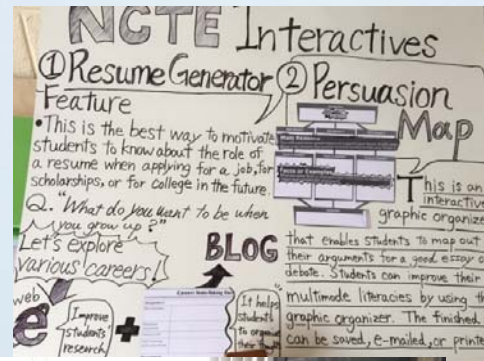 NCTE Interactives
① Resume Generator
Feature
• This is the best way to motivate
students to know about the role of
a resume when applying for a job, for
scholarships, or for college in the future.
Q. "What do you want to be when
you grow up?"
Let's explore
various careers!
BLOG
web
e
Improve
students'
research
+
It helps
students
to organize
their
② Persuasion
Map
This is an
interactive
graphic organize
that enables students to map out
their arguments for a good essay o
debate. Students can improve their
multimode literacies by using th
graphic organizer. The finished
can be saved, e-mailed, or printe